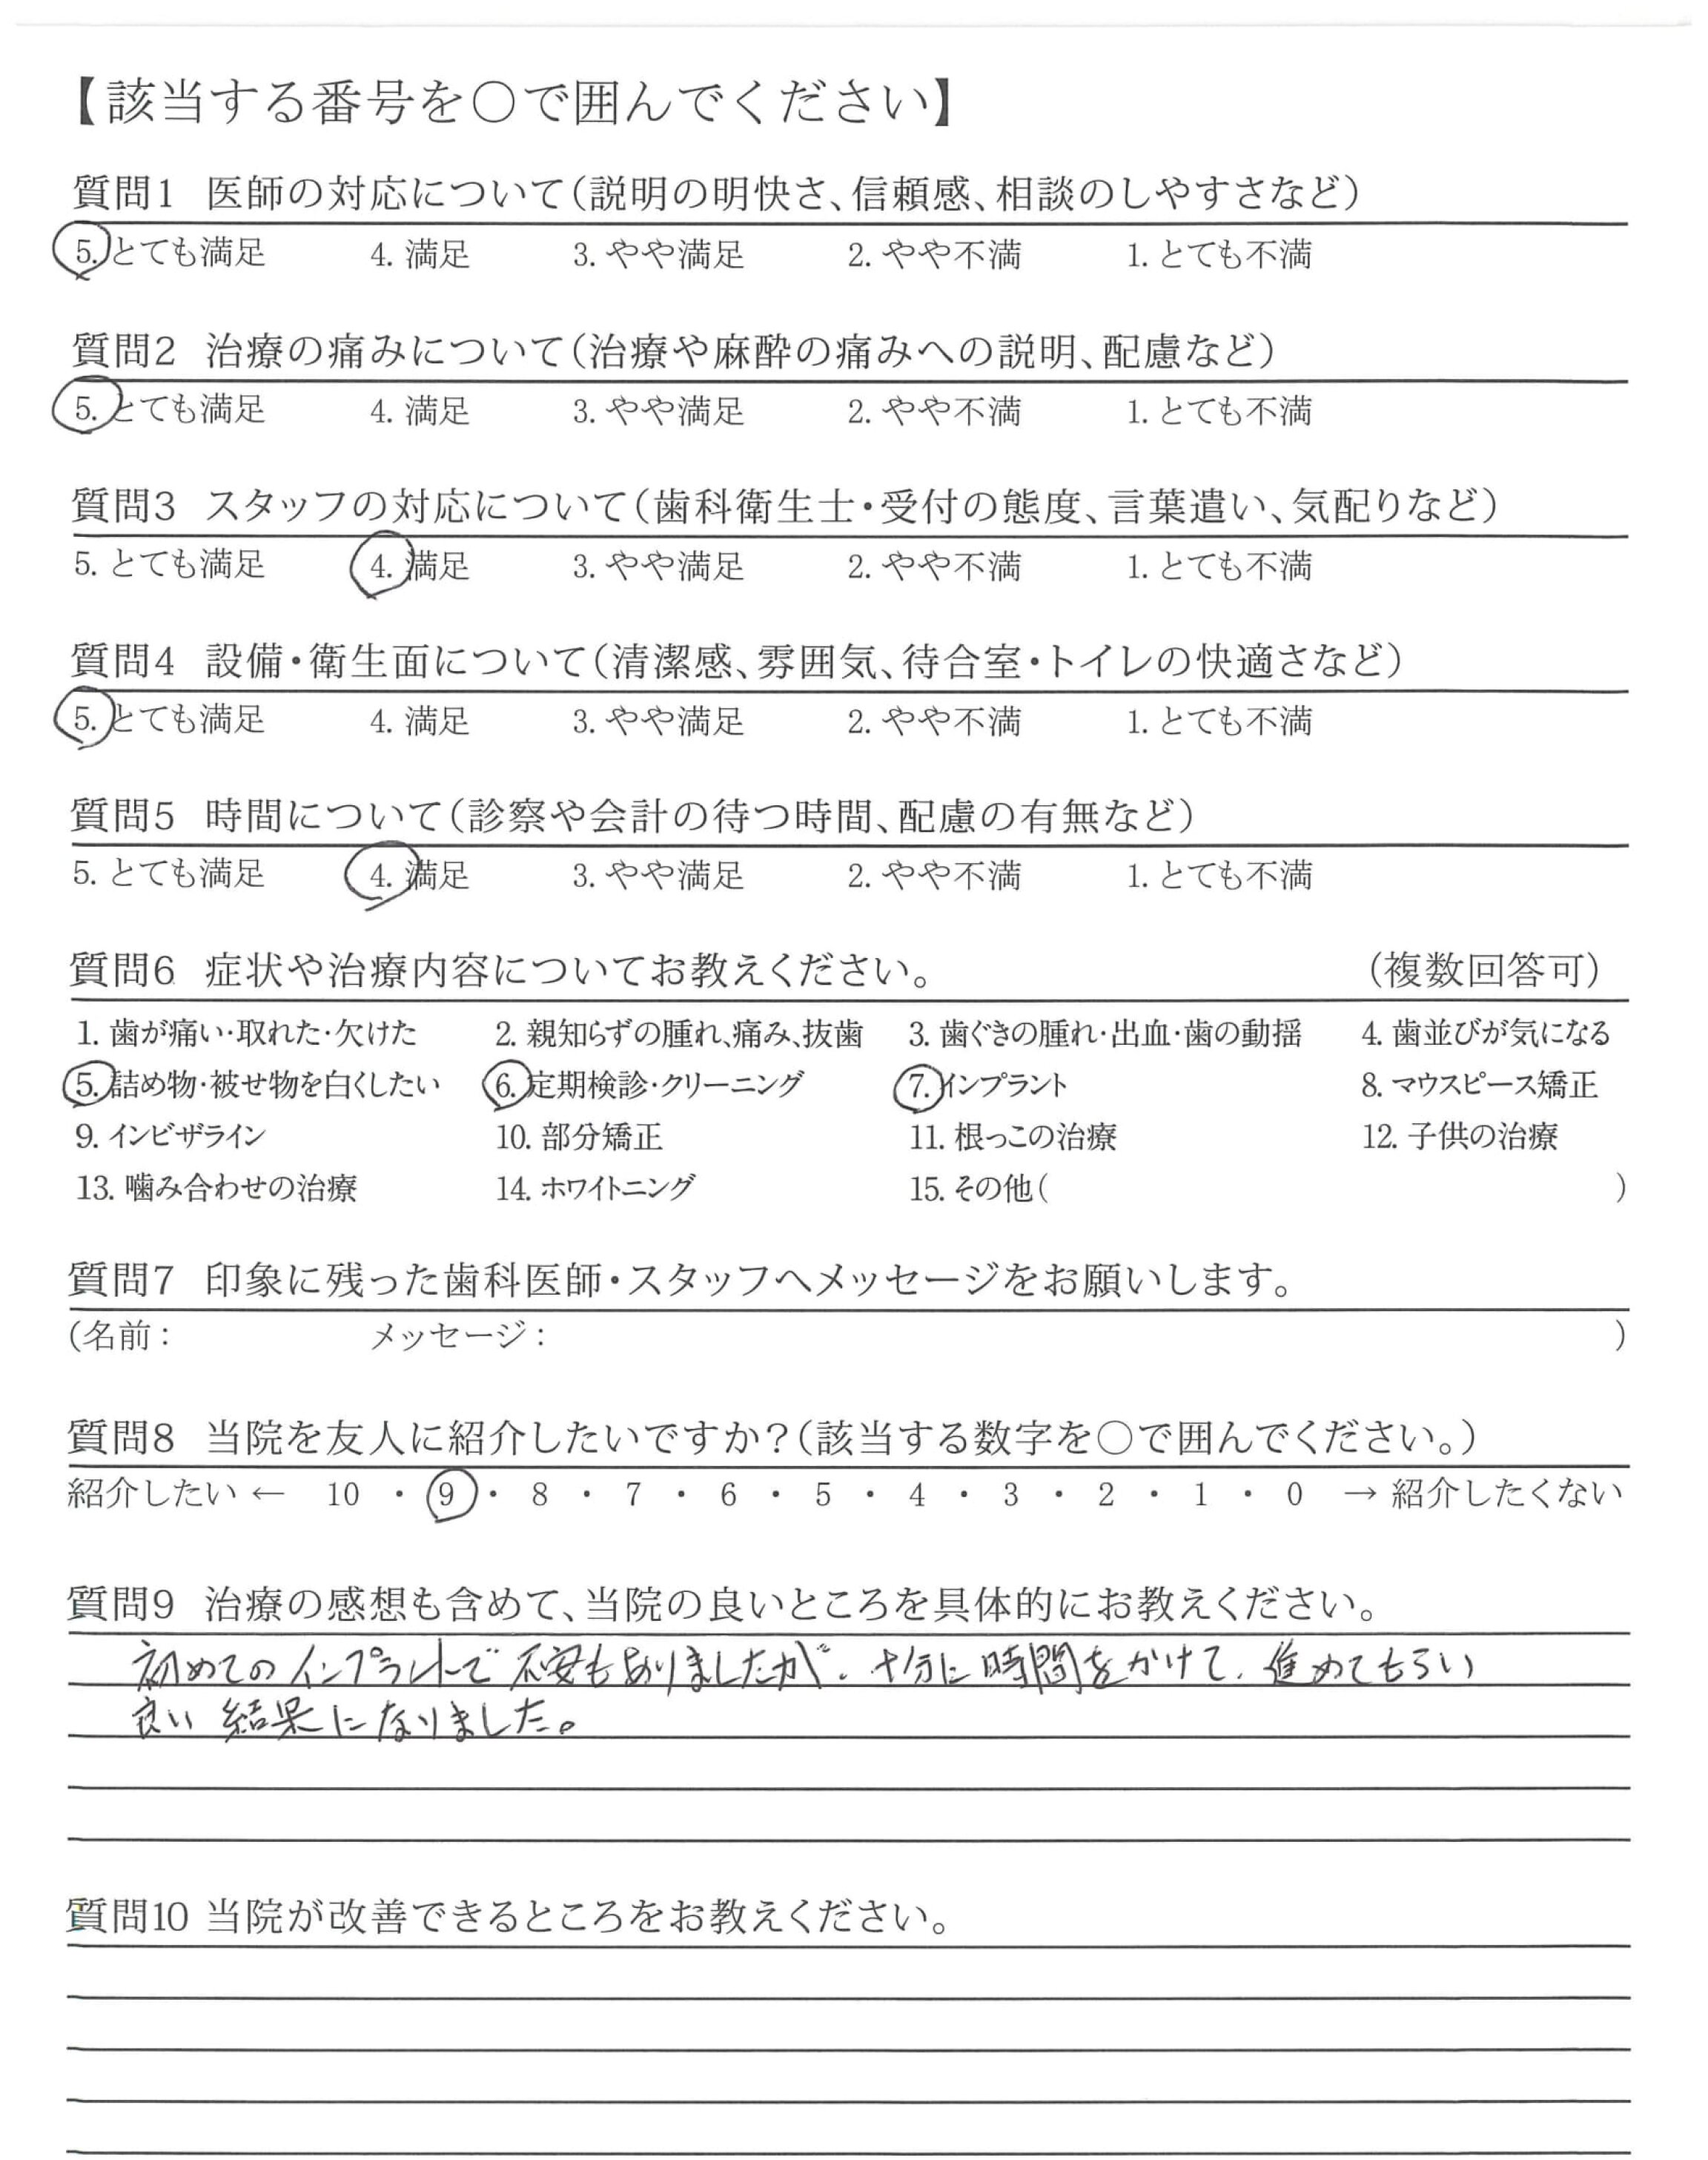 【該当する番号を〇で囲んでください】
質問1 医師の対応について(説明の明快さ、信頼感、相談のしやすさなど)
5. とても満足 4. 満足 3. やや満足 2. やや不満 1. とても不満
質問2 治療の痛みについて(治療や麻酔の痛みへの説明、配慮など)
5. とても満足 4. 満足 3. やや満足 2. やや不満 1. とても不満
質問3 スタッフの対応について(歯科衛生士・受付の態度、言葉遣い、気配りなど)
5. とても満足 4. 満足 3. やや満足 2. やや不満 1. とても不満
質問4 設備・衛生面について(清潔感、雰囲気、待合室・トイレの快適さなど)
5. とても満足 4. 満足 3. やや満足 2. やや不満 1. とても不満
質問5 時間について(診察や会計の待つ時間、配慮の有無など)
5. とても満足 4. 満足 3. やや満足 2. やや不満 1. とても不満
質問6 症状や治療内容についてお教えください。 (複数回答可)
1. 歯が痛い・取れた・欠けた 2. 親知らずの腫れ、痛み、抜歯 3. 歯ぐきの腫れ・出血・歯の動揺 4. 歯並びが気になる
5. 詰め物・被せ物を白くしたい 6. 定期検診・クリーニング 7. インプラント 8. マウスピース矯正
9. インビザライン 10. 部分矯正 11. 根っこの治療 12. 子供の治療
13. 噛み合わせの治療 14. ホワイトニング 15. その他( )
質問7 印象に残った歯科医師・スタッフへメッセージをお願いします。
(名前: メッセージ: )
質問8 当院を友人に紹介したいですか?(該当する数字を〇で囲んでください。)
紹介したい ← 10 ・ 9 ・ 8 ・ 7 ・ 6 ・ 5 ・ 4 ・ 3 ・ 2 ・ 1 ・ 0 → 紹介したくない
質問9 治療の感想も含めて、当院の良いところを具体的にお教えください。
初めてのインプラントで不安もありましたが、十分に時間をかけて、進めてもらい
良い結果になりました。
質問10 当院が改善できるところをお教えください。